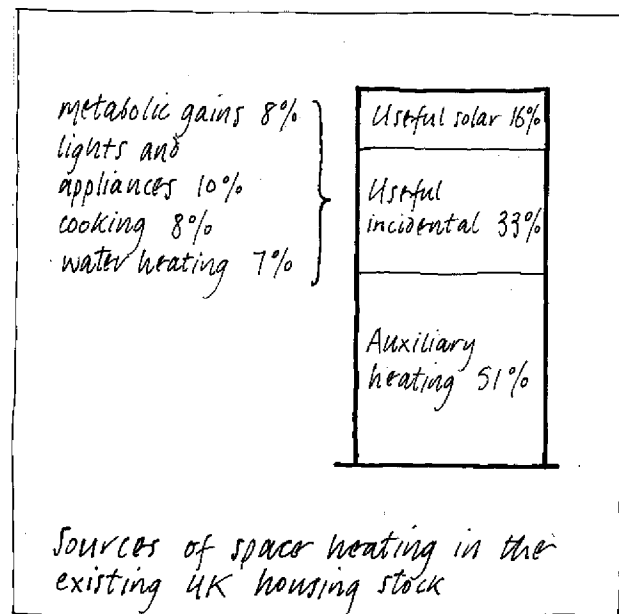 metabolic gains 8%
lights and
appliances 10%
cooking 8%
water heating 7%
Useful solar 16%
Useful
incidental 33%
Auxiliary
heating 51%
Sources of space heating in the
existing UK housing stock